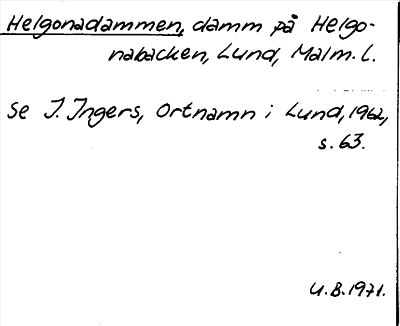 Helgonadammen, damm på Helgo-
nabacken, Lund, Malm. l.
Se I. Ingers, Ortnamn i Lund, 1962,
s. 63.
U.B. 1971.